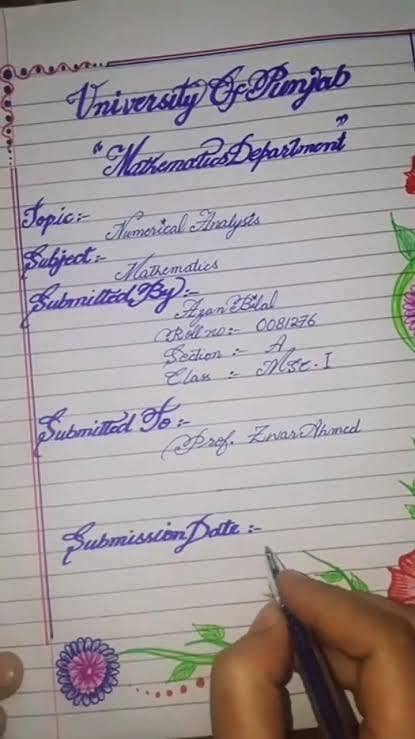 University Of Punjab
"Mathematics Department"
Topic:-
Numerical Analysis
Subject:-
Mathematics
Submitted By:-
Azan Bilal
Roll no:- 0081276
Section :- A
Class :- MSc-I
Submitted To :-
Prof. Zwar Ahmed
Submission Date :-